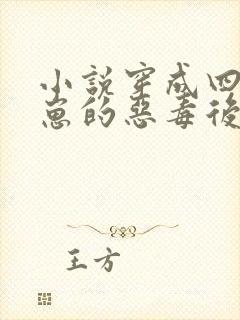 小說穿成四
崽的惡毒後
王方